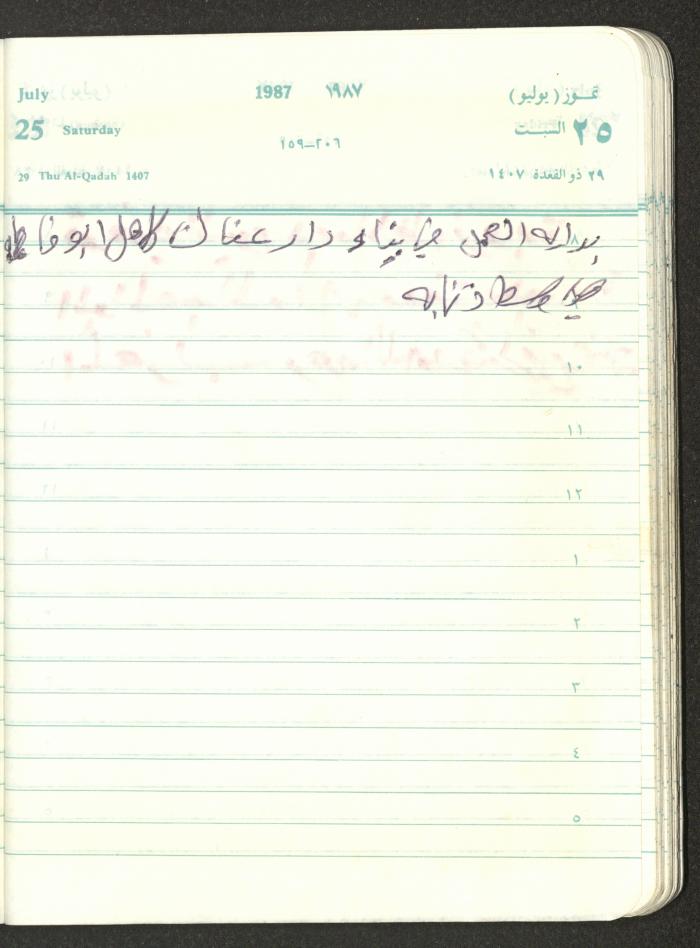 July 1987 ١٩٨٧ تمــوز (يوليو)
25 Saturday ٢٠٦–١٥٩ السبت ٢٥
29 Thu Al-Qadah 1407 ٢٩ ذو القعدة ١٤٠٧
بدايه العمل في بناء دار عفان كامل ابو
٨
٩
١٠
١١
١٢
١
٢
٣
٤
٥